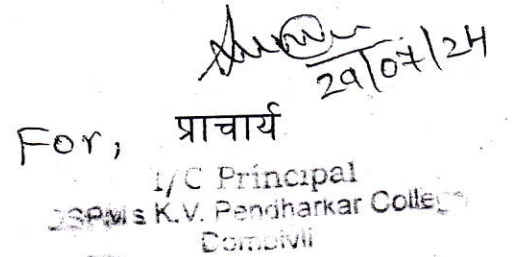 29/07/24
For, प्राचार्य
I/C Principal
DSPM's K.V. Pendharkar College
Dombivli